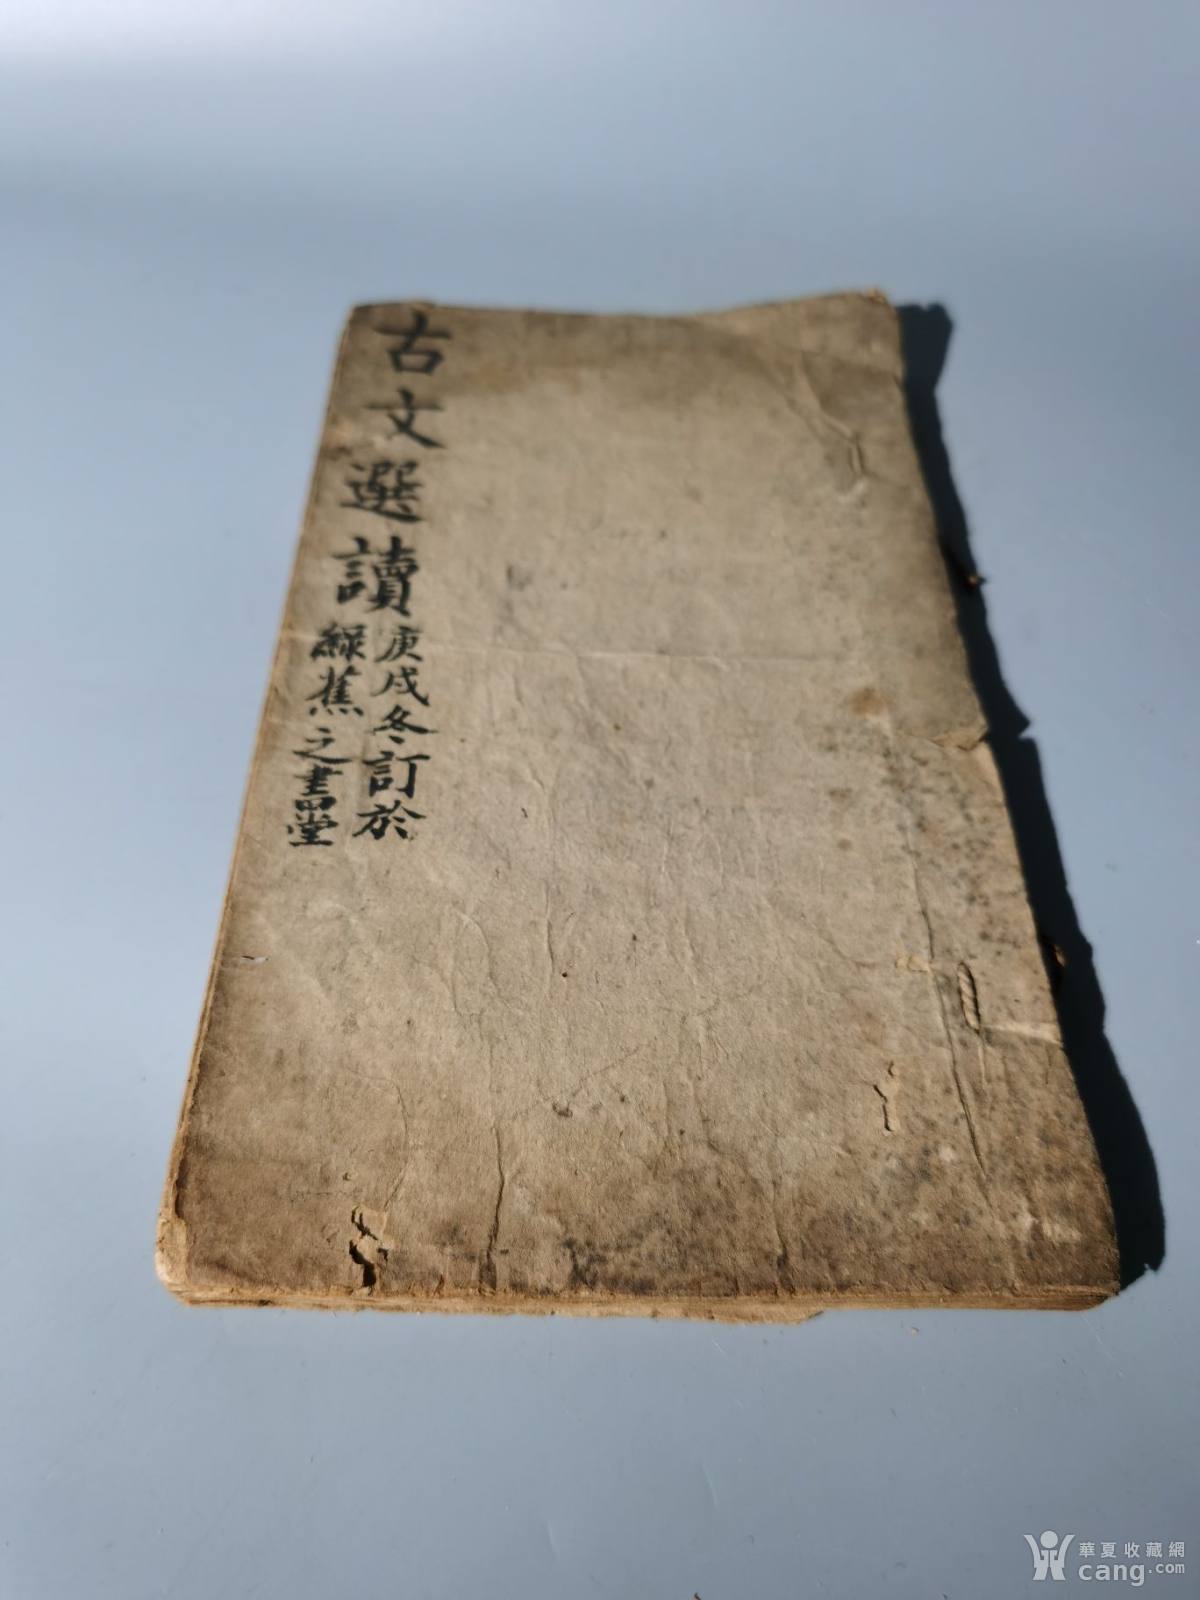 古文選讀
庚戌冬訂於
綠蕉之書堂
華夏收藏網
cang.com